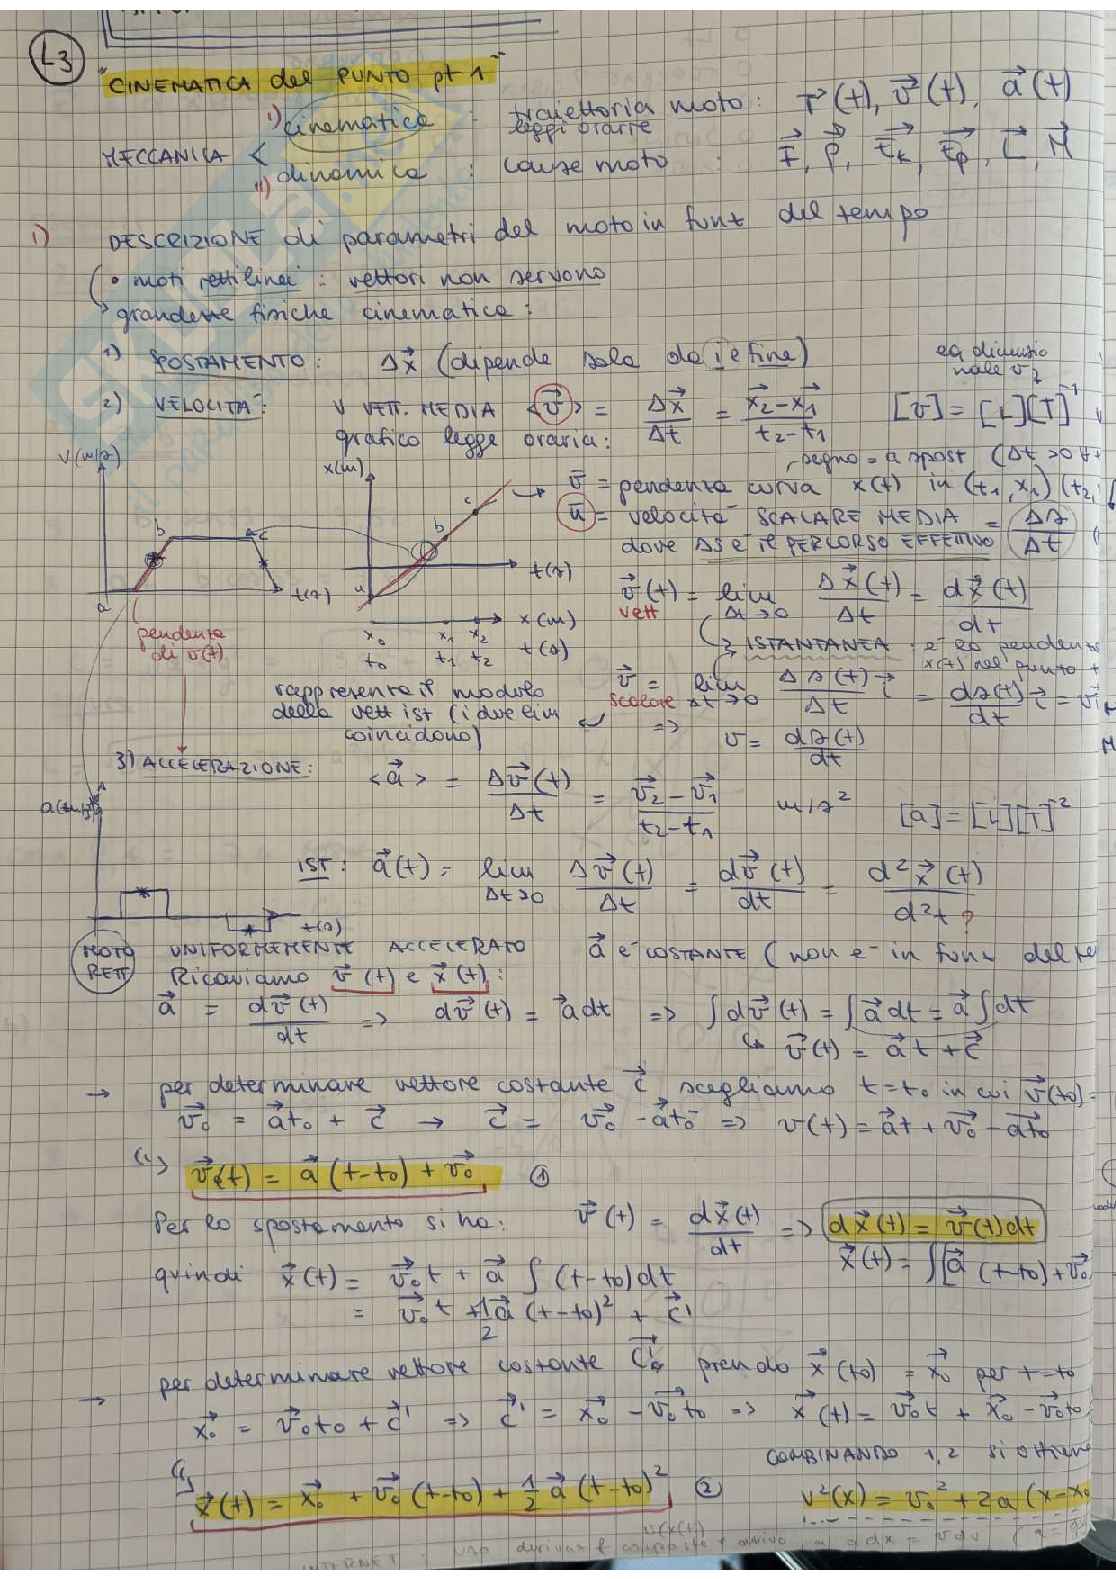 L3
"CINEMATICA del PUNTO pt 1"
MECCANICA <
i) cinematica : traiettoria moto: r⃗(t), v⃗(t), a⃗(t)
leggi orarie
ii) dinamica : cause moto : F⃗, p⃗, E⃗k, E⃗p, L⃗, M⃗
i) DESCRIZIONE di parametri del moto in funz del tempo
• moti rettilinei : vettori non servono
grandezze fisiche cinematica:
1) SPOSTAMENTO: Δx⃗ (dipende solo da i e fine)
eq dimensio
nale v
2) VELOCITÀ: v VETT. MEDIA <v⃗> = Δx⃗/Δt = (x⃗2 - x⃗1)/(t2 - t1) [v] = [L][T]⁻¹
grafico legge oraria:
segno = a spost (Δt >0
v(m/s)
b c
a t(s)
x(m)
a b c
t(s)
x0 x1 x2 x(m)
t0 t1 t2 t(s)
v̄ = pendenza curva x(t) in (t1, x1) (t2,
ū = velocità SCALARE MEDIA = Δs/Δt
dove Δs è il PERCORSO EFFETTIVO
pendenza
di v(t)
v⃗(t) = lim Δt→0 Δx⃗(t)/Δt = dx⃗(t)/dt
vett
ISTANTANEA : è la pendenz
x(t) nel punto t
v⃗ = lim Δt→0 Δs(t)/Δt τ⃗ = ds(t)/dt τ⃗ = v
scalare
=> v = ds(t)/dt
rappresenta il modulo
della vett ist (i due lim
coincidono)
3) ACCELERAZIONE: <a⃗> = Δv⃗(t)/Δt = (v⃗2 - v⃗1)/(t2 - t1) m/s² [a] = [L][T]⁻²
t(s)
IST: a⃗(t) = lim Δt→0 Δv⃗(t)/Δt = dv⃗(t)/dt = d²x⃗(t)/d²t ?
MOTO RETT UNIFORMEMENTE ACCELERATO a⃗ è COSTANTE (non è in funz del te
Ricaviamo v⃗(t) e x⃗(t):
a⃗ = dv⃗(t)/dt => dv⃗(t) = a⃗dt => ∫dv⃗(t) = ∫a⃗dt = a⃗∫dt
v⃗(t) = a⃗t + c⃗
→ per determinare vettore costante c⃗ scegliamo t=t0 in cui v⃗(t0) =
v⃗0 = a⃗t0 + c⃗ → c⃗ = v⃗0 - a⃗t0 => v(t) = a⃗t + v⃗0 - a⃗t0
v⃗(t) = a⃗(t-t0) + v⃗0 ①
Per lo spostamento si ha: v⃗(t) = dx⃗(t)/dt => dx⃗(t) = v⃗(t)dt
x⃗(t) = ∫[a⃗(t-t0) + v⃗0
quindi x⃗(t) = v⃗0t + a⃗∫(t-t0)dt
= v⃗0t + 1/2 a⃗(t-t0)² + c⃗'
→ per determinare vettore costante c⃗' prendo x⃗(t0) = x⃗0 per t=t0
x⃗0 = v⃗0t0 + c⃗' => c⃗' = x⃗0 - v⃗0t0 => x⃗(t) = v⃗0t + x⃗0 - v⃗0t0
COMBINANDO 1,2 si ottiene
x⃗(t) = x⃗0 + v⃗0(t-t0) + 1/2 a⃗(t-t0)² ②
v²(x) = v0² + 2a(x-x0